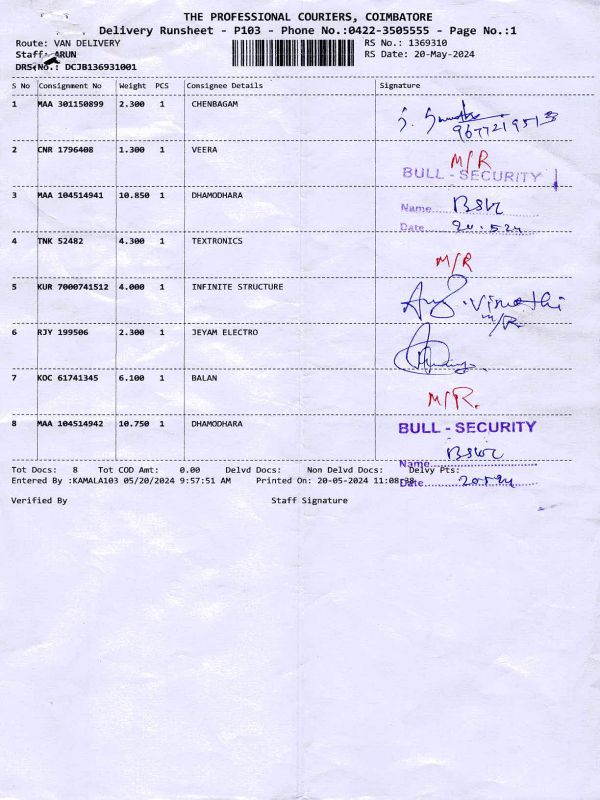 THE PROFESSIONAL COURIERS, COIMBATORE
Delivery Runsheet - P103 - Phone No.:0422-3505555 - Page No.:1
Route: VAN DELIVERY RS No.: 1369310
Staff: ARUN RS Date: 20-May-2024
DRS No.: DCJB136931001
S No Consignment No Weight PCS Consignee Details Signature
1 MAA 301150899 2.300 1 CHENBAGAM
9677219513
2 CNR 1796408 1.300 1 VEERA M/R
BULL - SECURITY
3 MAA 104514941 10.850 1 DHAMODHARA
Name
Date 20.5.24
4 TNK 52482 4.300 1 TEXTRONICS
M/R
5 KUR 7000741512 4.000 1 INFINITE STRUCTURE
M/R
6 RJY 199506 2.300 1 JEYAM ELECTRO
7 KOC 61741345 6.100 1 BALAN
M/R.
8 MAA 104514942 10.750 1 DHAMODHARA
BULL - SECURITY
Name
Tot Docs: 8 Tot COD Amt: 0.00 Delvd Docs: Non Delvd Docs: Delvy Pts:
Entered By :KAMALA103 05/20/2024 9:57:51 AM Printed On: 20-05-2024 Date
Verified By Staff Signature